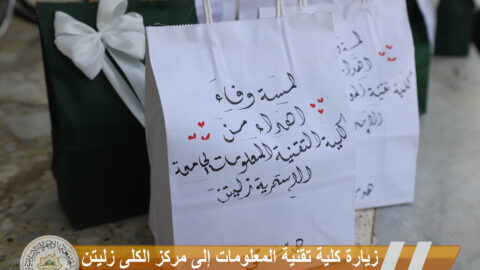 لمسة وفاء
اهداء من
كلية التقنية المعلومات الجامعة
الإسمرية زليتن
لمسة
اهداء
كلية تقنية
زيارة كلية تقنية المعلومات إلى مركز الكلى زليتن